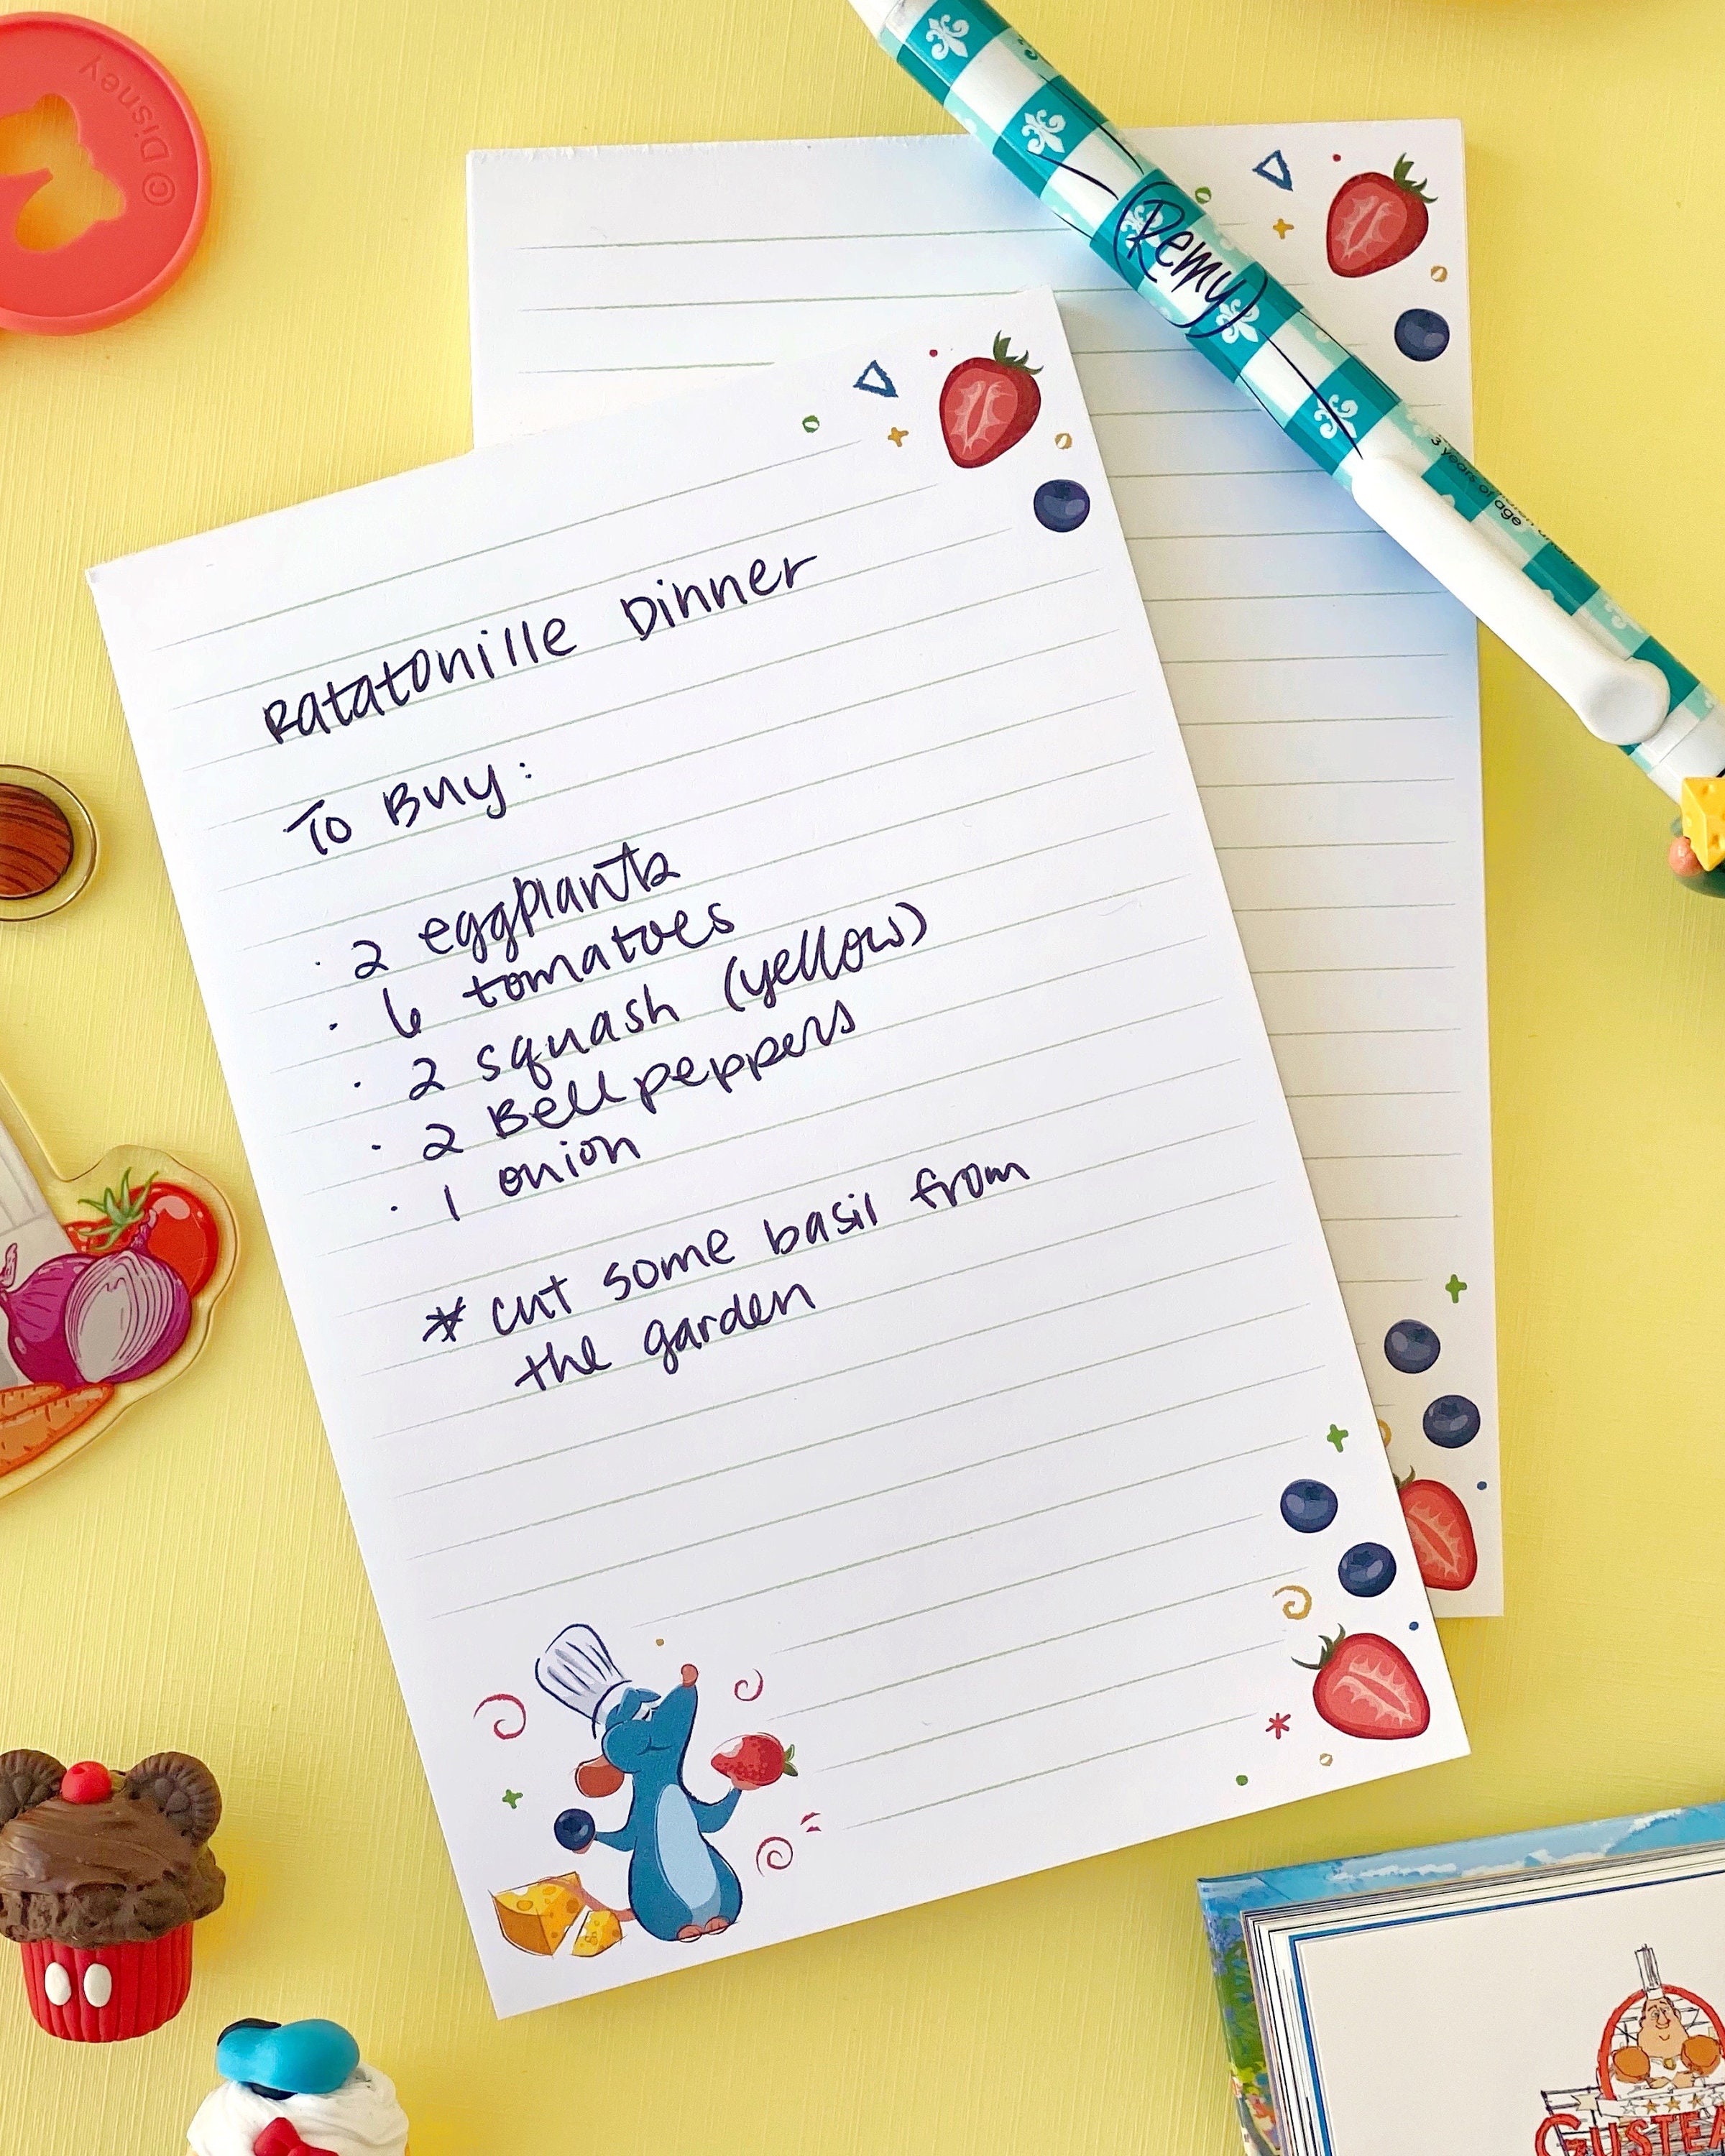 © Disney
(Remy)
3 years of age
Ratatouille Dinner
To Buy:
· 2 eggplants
· 6 tomatoes
· 2 squash (yellow)
· 2 Bell peppers
· 1 onion
* cut some basil from
the garden